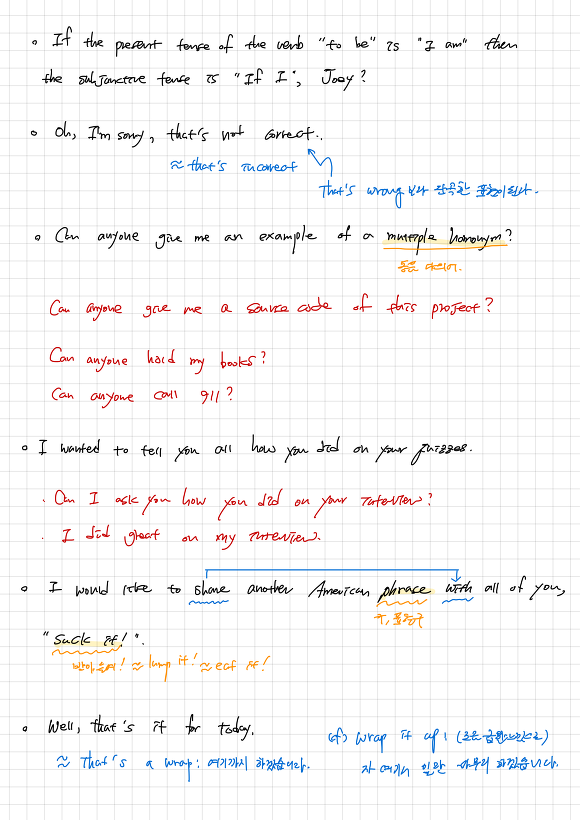 ◦ If the present tense of the verb "to be" is "I am" then
the subjunctive tense is "If I", Joey?
◦ Oh, I'm sorry, that's not correct..
≈ that's incorrect
That's wrong 보다 완곡한 표현이 된다.
◦ Can anyone give me an example of a multiple homonym?
동음 다의어.
Can anyone give me a source code of this project?
Can anyone hold my books?
Can anyone call 911?
◦ I wanted to tell you all how you did on your quizzes.
· Can I ask you how you did on your interview?
· I did great on my interview.
◦ I would like to share another American phrase with all of you,
구, 표현구
"Suck it!".
받아들여! ≈ lump it! ≈ eat it!
◦ Well, that's it for today.
≈ That's a wrap: 여기까지 하겠습니다.
cf) wrap it up:
자 여기서 일단 마무리 하겠습니다.